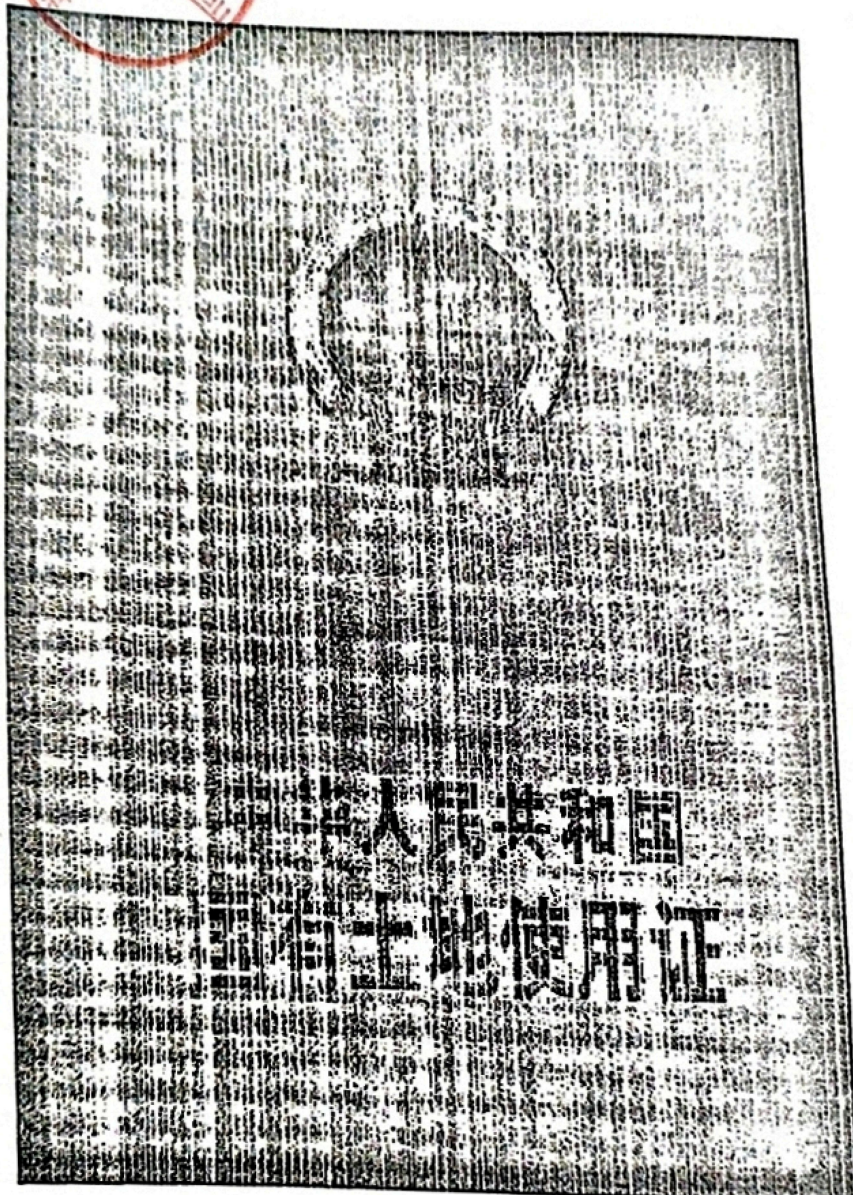 中华人民共和国
国有土地使用证